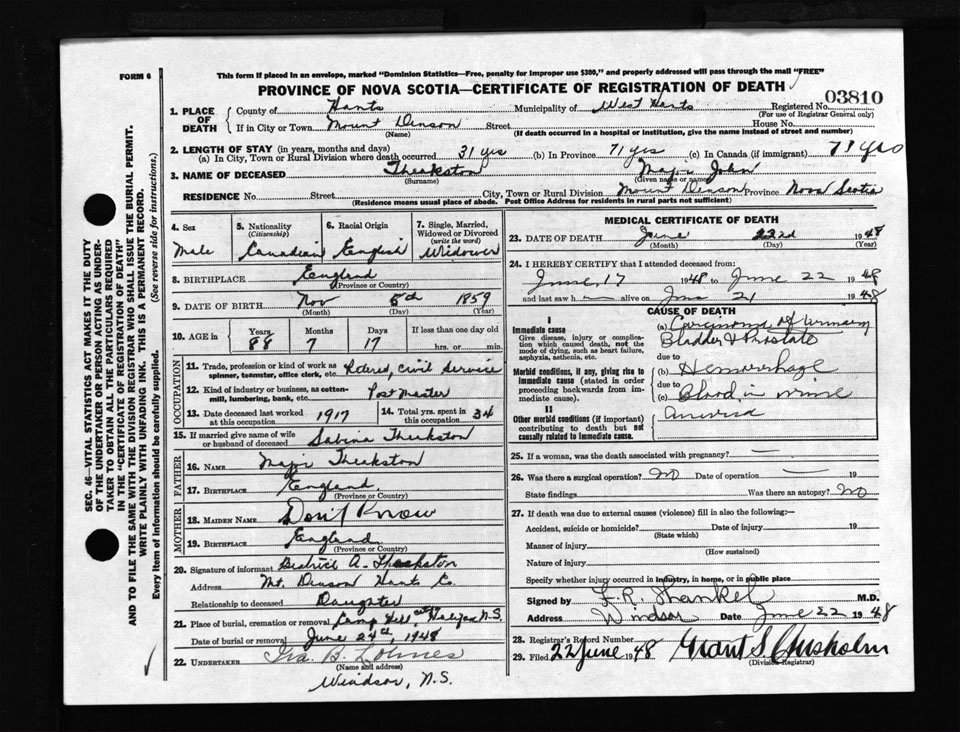 FORM 6
This form if placed in an envelope, marked "Dominion Statistics—Free, penalty for improper use $300," and properly addressed will pass through the mail "FREE"
PROVINCE OF NOVA SCOTIA—CERTIFICATE OF REGISTRATION OF DEATH
03810
1. PLACE OF DEATH { County of Hants Municipality of West Hants Registered No.
(For use of Registrar General only)
If in City or Town Mount Denson Street House No.
(Name) (If death occurred in a hospital or institution, give the name instead of street and number)
2. LENGTH OF STAY (in years, months and days)
(a) In City, Town or Rural Division where death occurred 31 yrs (b) In Province 71 yrs (c) In Canada (if immigrant) 71 yrs
3. NAME OF DECEASED Theakston John
(Surname) (Given name or names)
RESIDENCE No. Street City, Town or Rural Division Mount Denson Province Nova Scotia
(Residence means usual place of abode. Post Office Address for residents in rural parts not sufficient)
4. Sex
Male
5. Nationality
(Citizenship)
Canadian
6. Racial Origin
English
7. Single, Married, Widowed or Divorced
(write the word)
Widower
8. BIRTHPLACE England
(Province or Country)
9. DATE OF BIRTH Nov 5th 1859
(Month) (Day) (Year)
10. AGE in { Years Months Days If less than one day old
88 7 17 hrs. or min.
OCCUPATION
11. Trade, profession or kind of work as spinner, teamster, office clerk, etc. Retired, civil service
12. Kind of industry or business, as cotton-mill, lumbering, bank, etc. Post Master
13. Date deceased last worked at this occupation 1917
14. Total yrs. spent in this occupation 34
15. If married give name of wife or husband of deceased Sabina Theakston
FATHER
16. NAME Theakston
17. BIRTHPLACE England
(Province or Country)
MOTHER
18. MAIDEN NAME Don't Know
19. BIRTHPLACE England
(Province or Country)
20. Signature of informant Beatrice A. Theakston
Address Mt. Denson Hants Co.
Relationship to deceased Daughter
21. Place of burial, cremation or removal Camp Hill city Halifax N.S.
Date of burial or removal June 24th, 1948
22. UNDERTAKER Ira. B.
(Name and address)
Windsor, N.S.
MEDICAL CERTIFICATE OF DEATH
23. DATE OF DEATH June 22nd 1948
(Month) (Day) (Year)
24. I HEREBY CERTIFY that I attended deceased from:
June 17 1948 to June 22 1948
and last saw h alive on June 21 1948
CAUSE OF DEATH
I
Immediate cause
Give disease, injury or complication which caused death, not the mode of dying, such as heart failure, asphyxia, asthenia, etc.
(a) Carcinoma of urinary
Bladder & Prostate
due to
Morbid conditions, if any, giving rise to immediate cause (stated in order proceeding backwards from immediate cause).
(b) Hemorrhage
due to
(c) Blood in urine
II
Other morbid conditions (if important) contributing to death but not causally related to immediate cause.
25. If a woman, was the death associated with pregnancy? —
26. Was there a surgical operation? no Date of operation — 19
State findings Was there an autopsy? no
27. If death was due to external causes (violence) fill in also the following:—
Accident, suicide or homicide? Date of injury 19
(State which)
Manner of injury
(How sustained)
Nature of injury
Specify whether injury occurred in industry, in home, or in public place
Signed by F. R. Shankel M.D.
Address Windsor Date June 22 1948
28. Registrar's Record Number
29. Filed 22 June 1948 Grant S. Chisholm
(Division Registrar)
SEC. 46—VITAL STATISTICS ACT MAKES IT THE DUTY
OF THE UNDERTAKER OR PERSON ACTING AS UNDERTAKER TO OBTAIN ALL THE PARTICULARS REQUIRED
IN THE "CERTIFICATE OF REGISTRATION OF DEATH"
AND TO FILE THE SAME WITH THE DIVISION REGISTRAR WHO SHALL ISSUE THE BURIAL PERMIT.
WRITE PLAINLY WITH UNFADING INK. THIS IS A PERMANENT RECORD.
Every item of information should be carefully supplied. (See reverse side for instructions.)